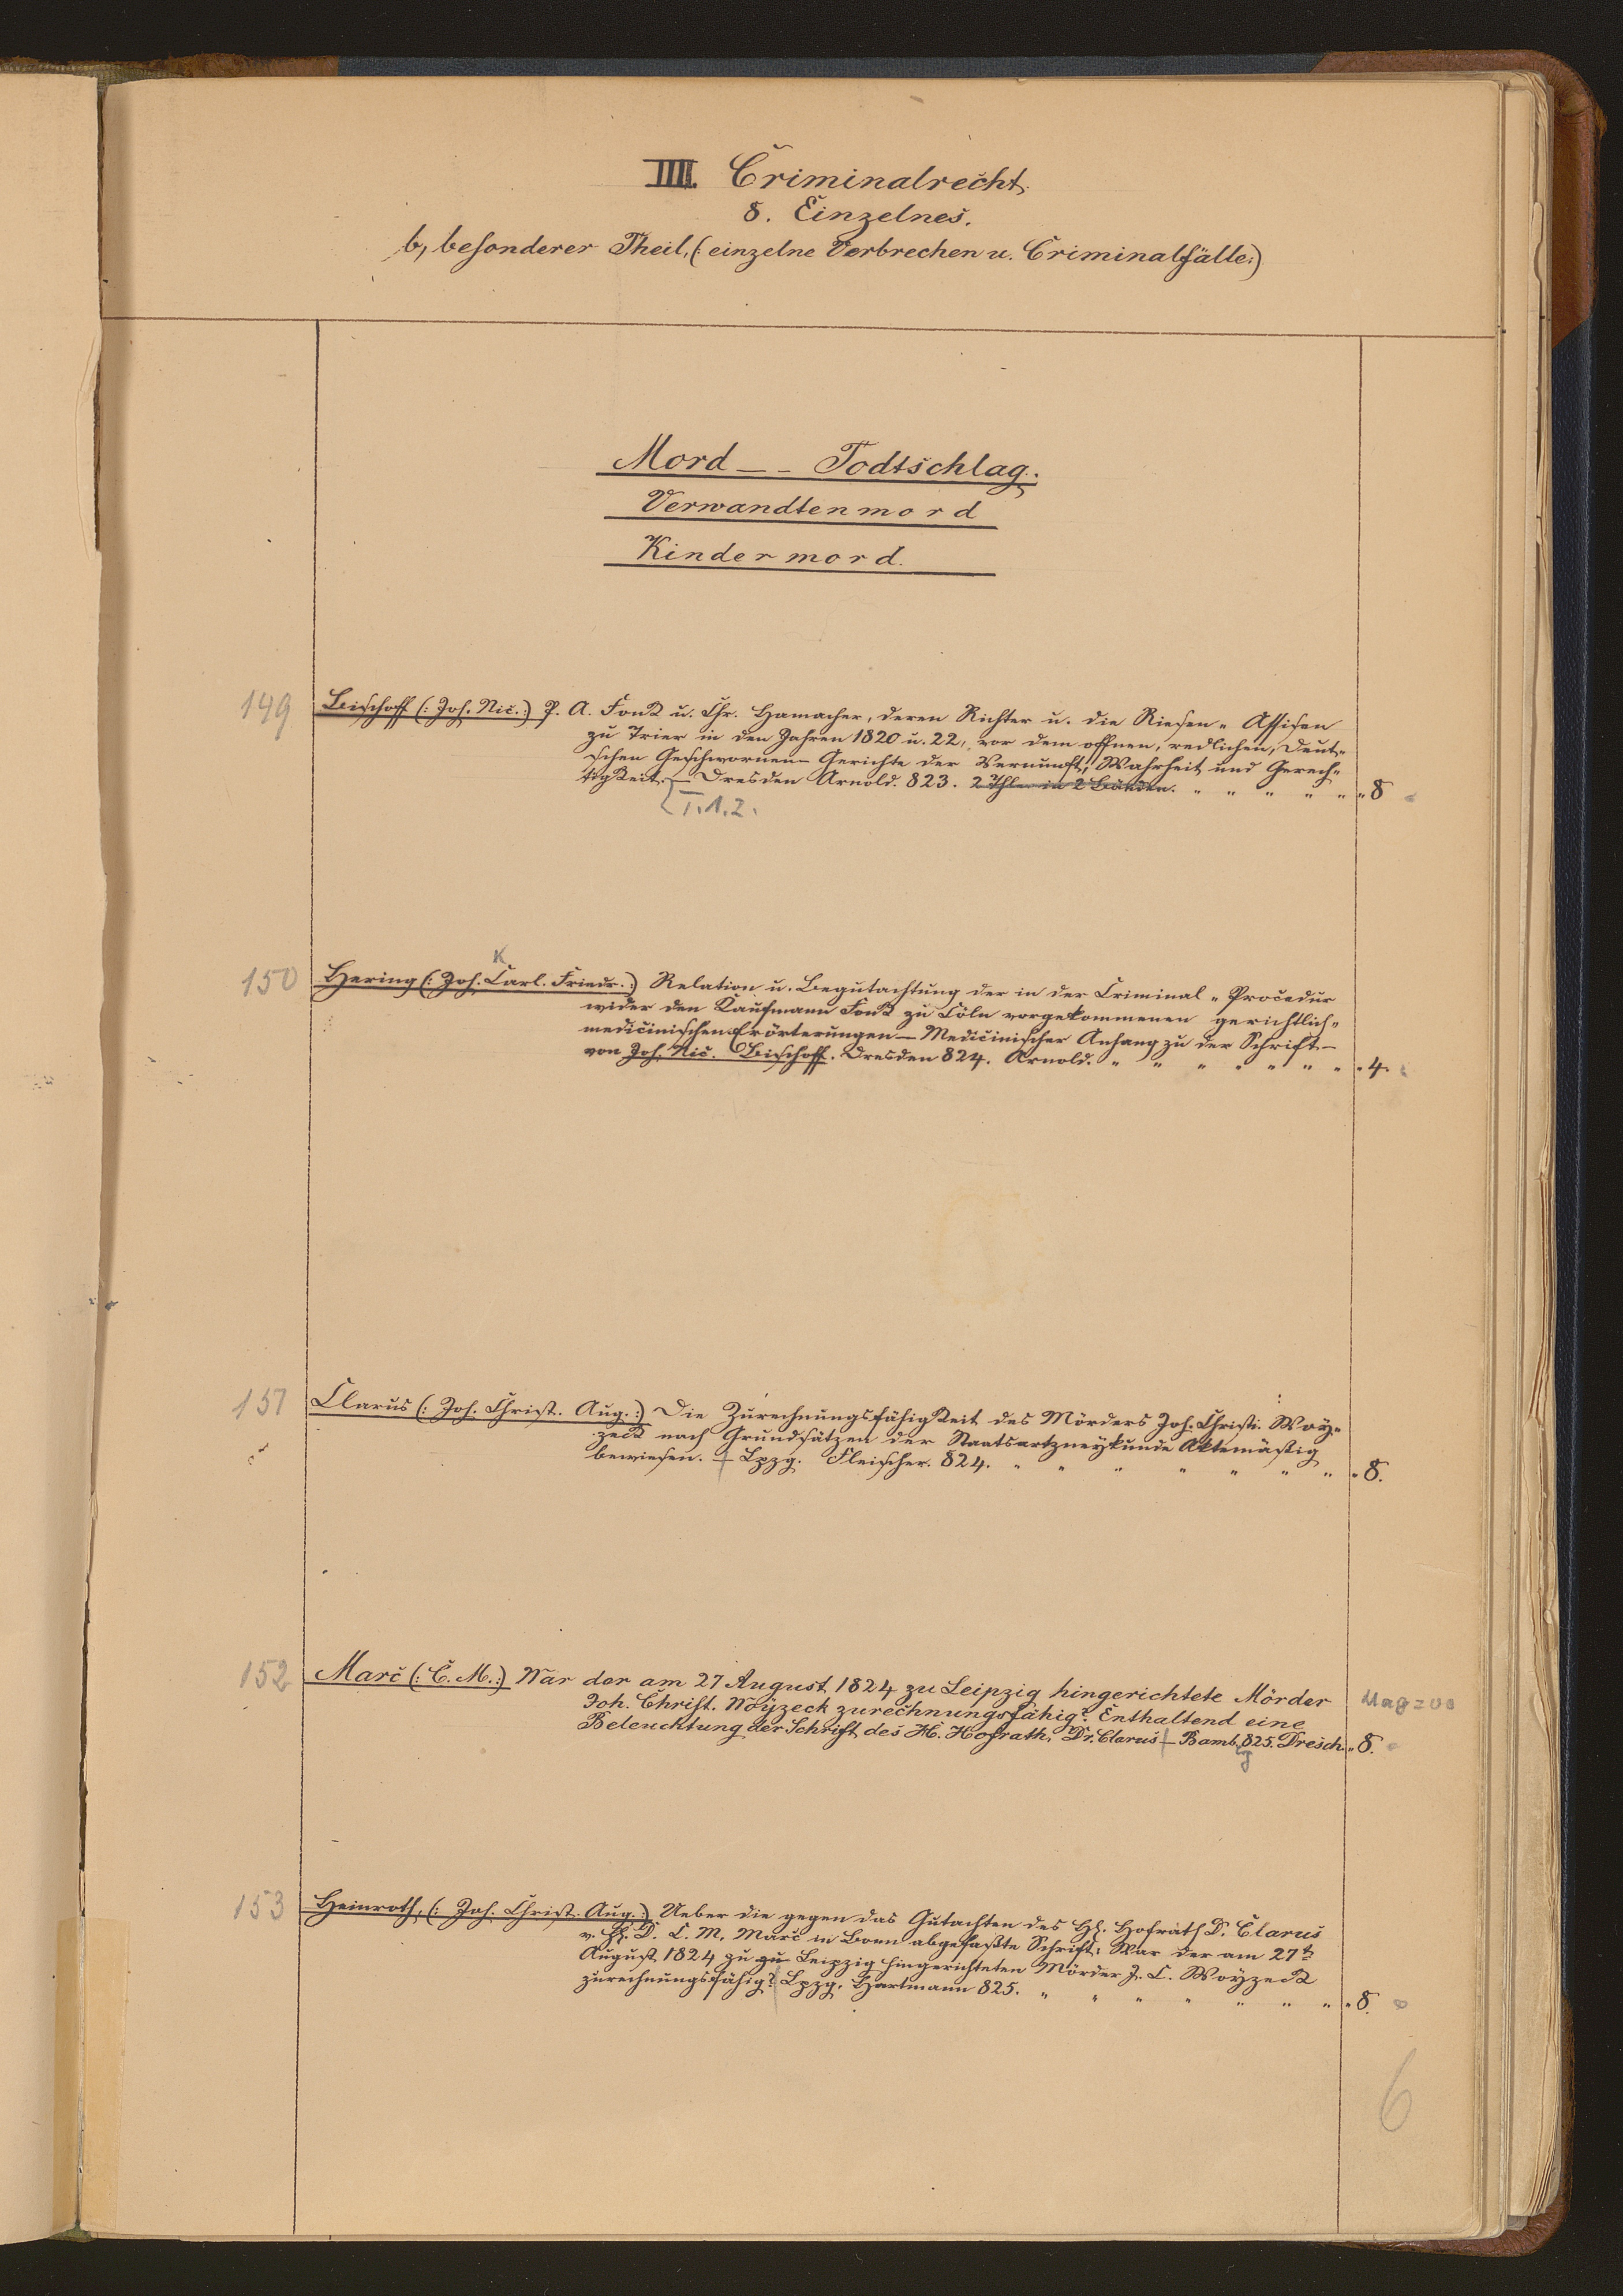 IIII. Criminalrecht.
8. Einzelnes.
b, besonderer Theil, (: einzelne Verbrechen u. Criminalfälle:)
Mord -- Todtschlag.
Verwandtenmord
Kindermord.
149 Bischoff (: Joh. Nic. :) P. A. Fonk u. Chr. Hamacher, deren Richter u. die Riesen-Assisen
zu Trier in den Jahren 1820 u. 22, vor dem offnen, redlichen, deut-
schen Geschwornen-Gerichte der Vernunft, Wahrheit und Gerech-
tigkeit. — Dresden Arnold. 823. 2 Thle in 2 Bänden. " " " " " 8
T. 1. 2.
K
150 Hering (: Joh. Carl. Friedr. :) Relation u. Begutachtung der in der Criminal-Procedur
wider den Kaufmann Fonk zu Cöln vorgekommenen gerichtlich-
medicinischen Erörterungen — Medicinischer Anhang zu der Schrift —
von Joh. Nic. Bischoff. Dresden 824. Arnold. " " " " " " " 4.
151 Clarus (: Joh. Christ. Aug. :) Die Zurechnungsfähigkeit des Mörders Joh. Christ. Woy-
zeck nach Grundsätzen der Staatsartzneykunde Aktemäßig
bewiesen. — Lpzg. Fleischer. 824. " " " " " " " 8.
152 Marc (: C. M. :) War der am 27 August 1824 zu Leipzig hingerichtete Mörder
Joh. Christ. Woÿzeck zurechnungsfähig? Enthaltend eine
Beleuchtung der Schrift des H. Hofrath, Dr. Clarus — Bamb. 825. Dresch. " 8.
bg
153 Heinroth, (: Joh. Christ. Aug. :) Ueber die gegen das Gutachten des H. Hofrath D. Clarus
v. H. D. C. M. Marc in Bonn abgefaßte Schrift: War der am 27t
August 1824 zu zu Leipzig hingerichteten Mörder J. C. Woyzeck
zurechnungsfähig? Lpzg. Hartmann 825. " " " " " " " 8.
6